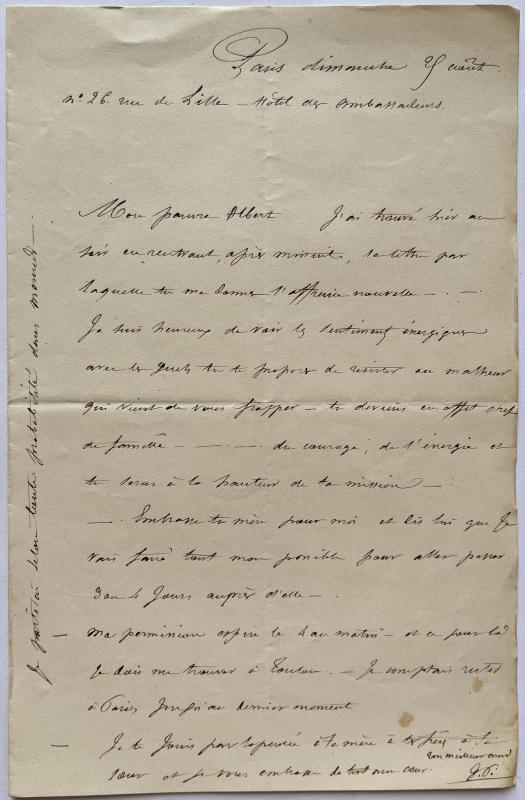 Paris dimanche 25 août
n° 26. rue de Lille - Hôtel des Ambassadeurs.
Mon pauvre Albert J'ai trouvé hier au
soir en rentrant, après minuit, ta lettre par
laquelle tu me donnes l'affreuse nouvelle - . -
Je suis heureux de voir les sentiments énergiques
avec les quels tu te proposes de résister au malheur
qui vient de vous frapper - tu deviens en effet chef
de famille - - . - . du courage, de l'énergie et
tu seras à la hauteur de ta mission -
- . Embrasse ta mère pour moi et dis lui que je
vais faire tout mon possible pour aller passer
3 ou 4 jours auprès d'elle -
- ma permission expire le 4 au matin - et ce jour là
je dois me trouver à Toulon. - Je comptais rester
à Paris jusqu'au dernier moment
- Je te suis par la pensée à ta mère à tes frères à ta
sœur et je vous embrasse de tout mon cœur.
ton meilleur ami
Je partirai selon toute probabilité dans